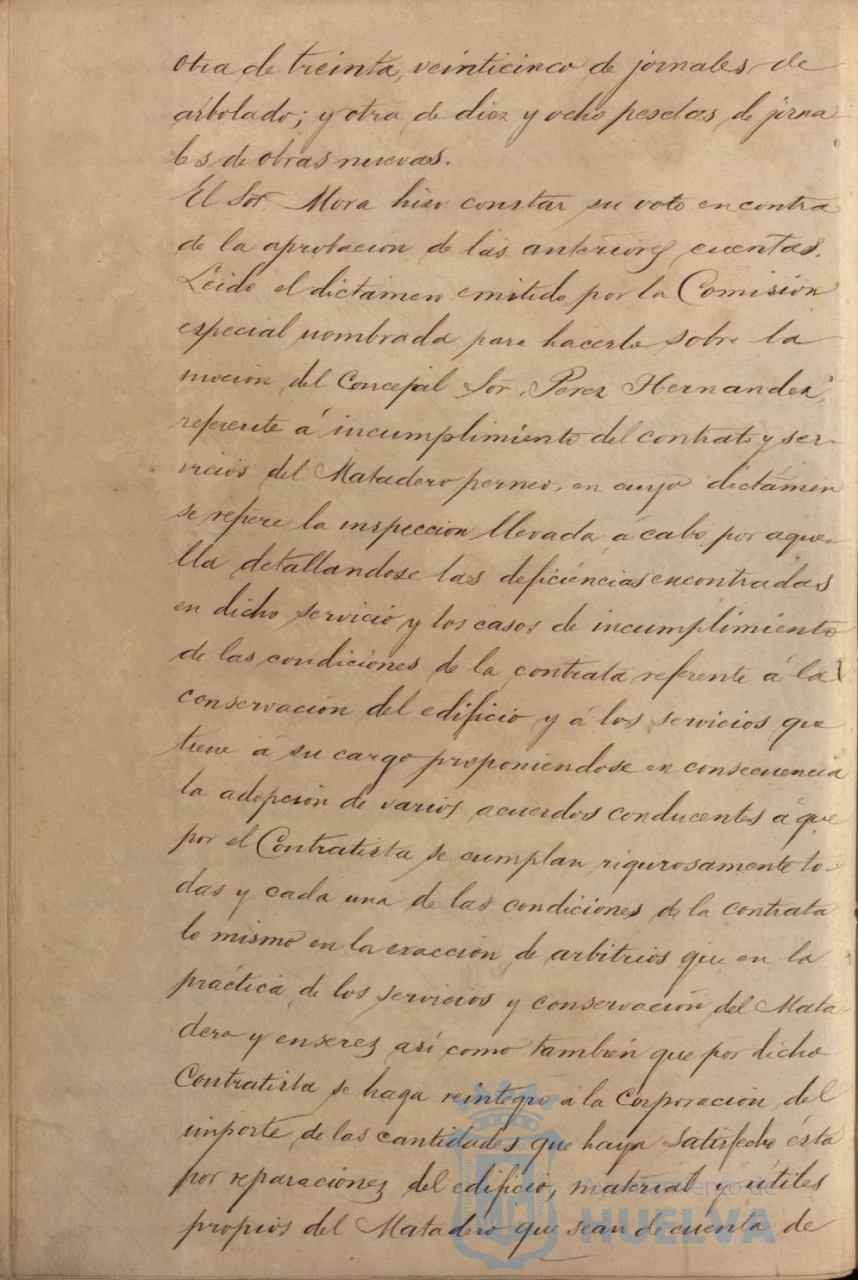 otra de treinta, veinticinco de jornales de
arbolado; y otra de diez y ocho pesetas de jorna
les de obras nuevas.
El Sor. Mora hizo constar su voto en contra
de la aprobacion de las anteriores cuentas.
Leido el dictámen emitido por la Comisión
especial nombrada para hacerlo sobre la
mocion del Concejal Sor. Perez Hernandez,
referente á incumplimiento del contrato y ser-
vicios del Matadero perneo, en cuyo dictámen
se refiere la inspeccion llevada á cabo por aque-
lla detallandose las deficiencias encontradas
en dicho servicio y los casos de incumplimiento
de las condiciones de la contrata referente á la
conservación del edificio y á los servicios que
tiene á su cargo proponiendose en consecuencia
la adopción de varios acuerdos conducentes á que
por el Contratista se cumplan rigurosamente to-
das y cada una de las condiciones de la contrata
lo mismo en la exacción de arbitrios que en la
práctica de los servicios y conservación del Mata-
dero y enseres así como también que por dicho
Contratista se haga reintegro á la Corporación del
importe de las cantidades que haya satisfecho ésta
por reparaciones del edificio, material y útiles
propios del Matadero que sean de cuenta de
Ayuntamiento de
HUELVA